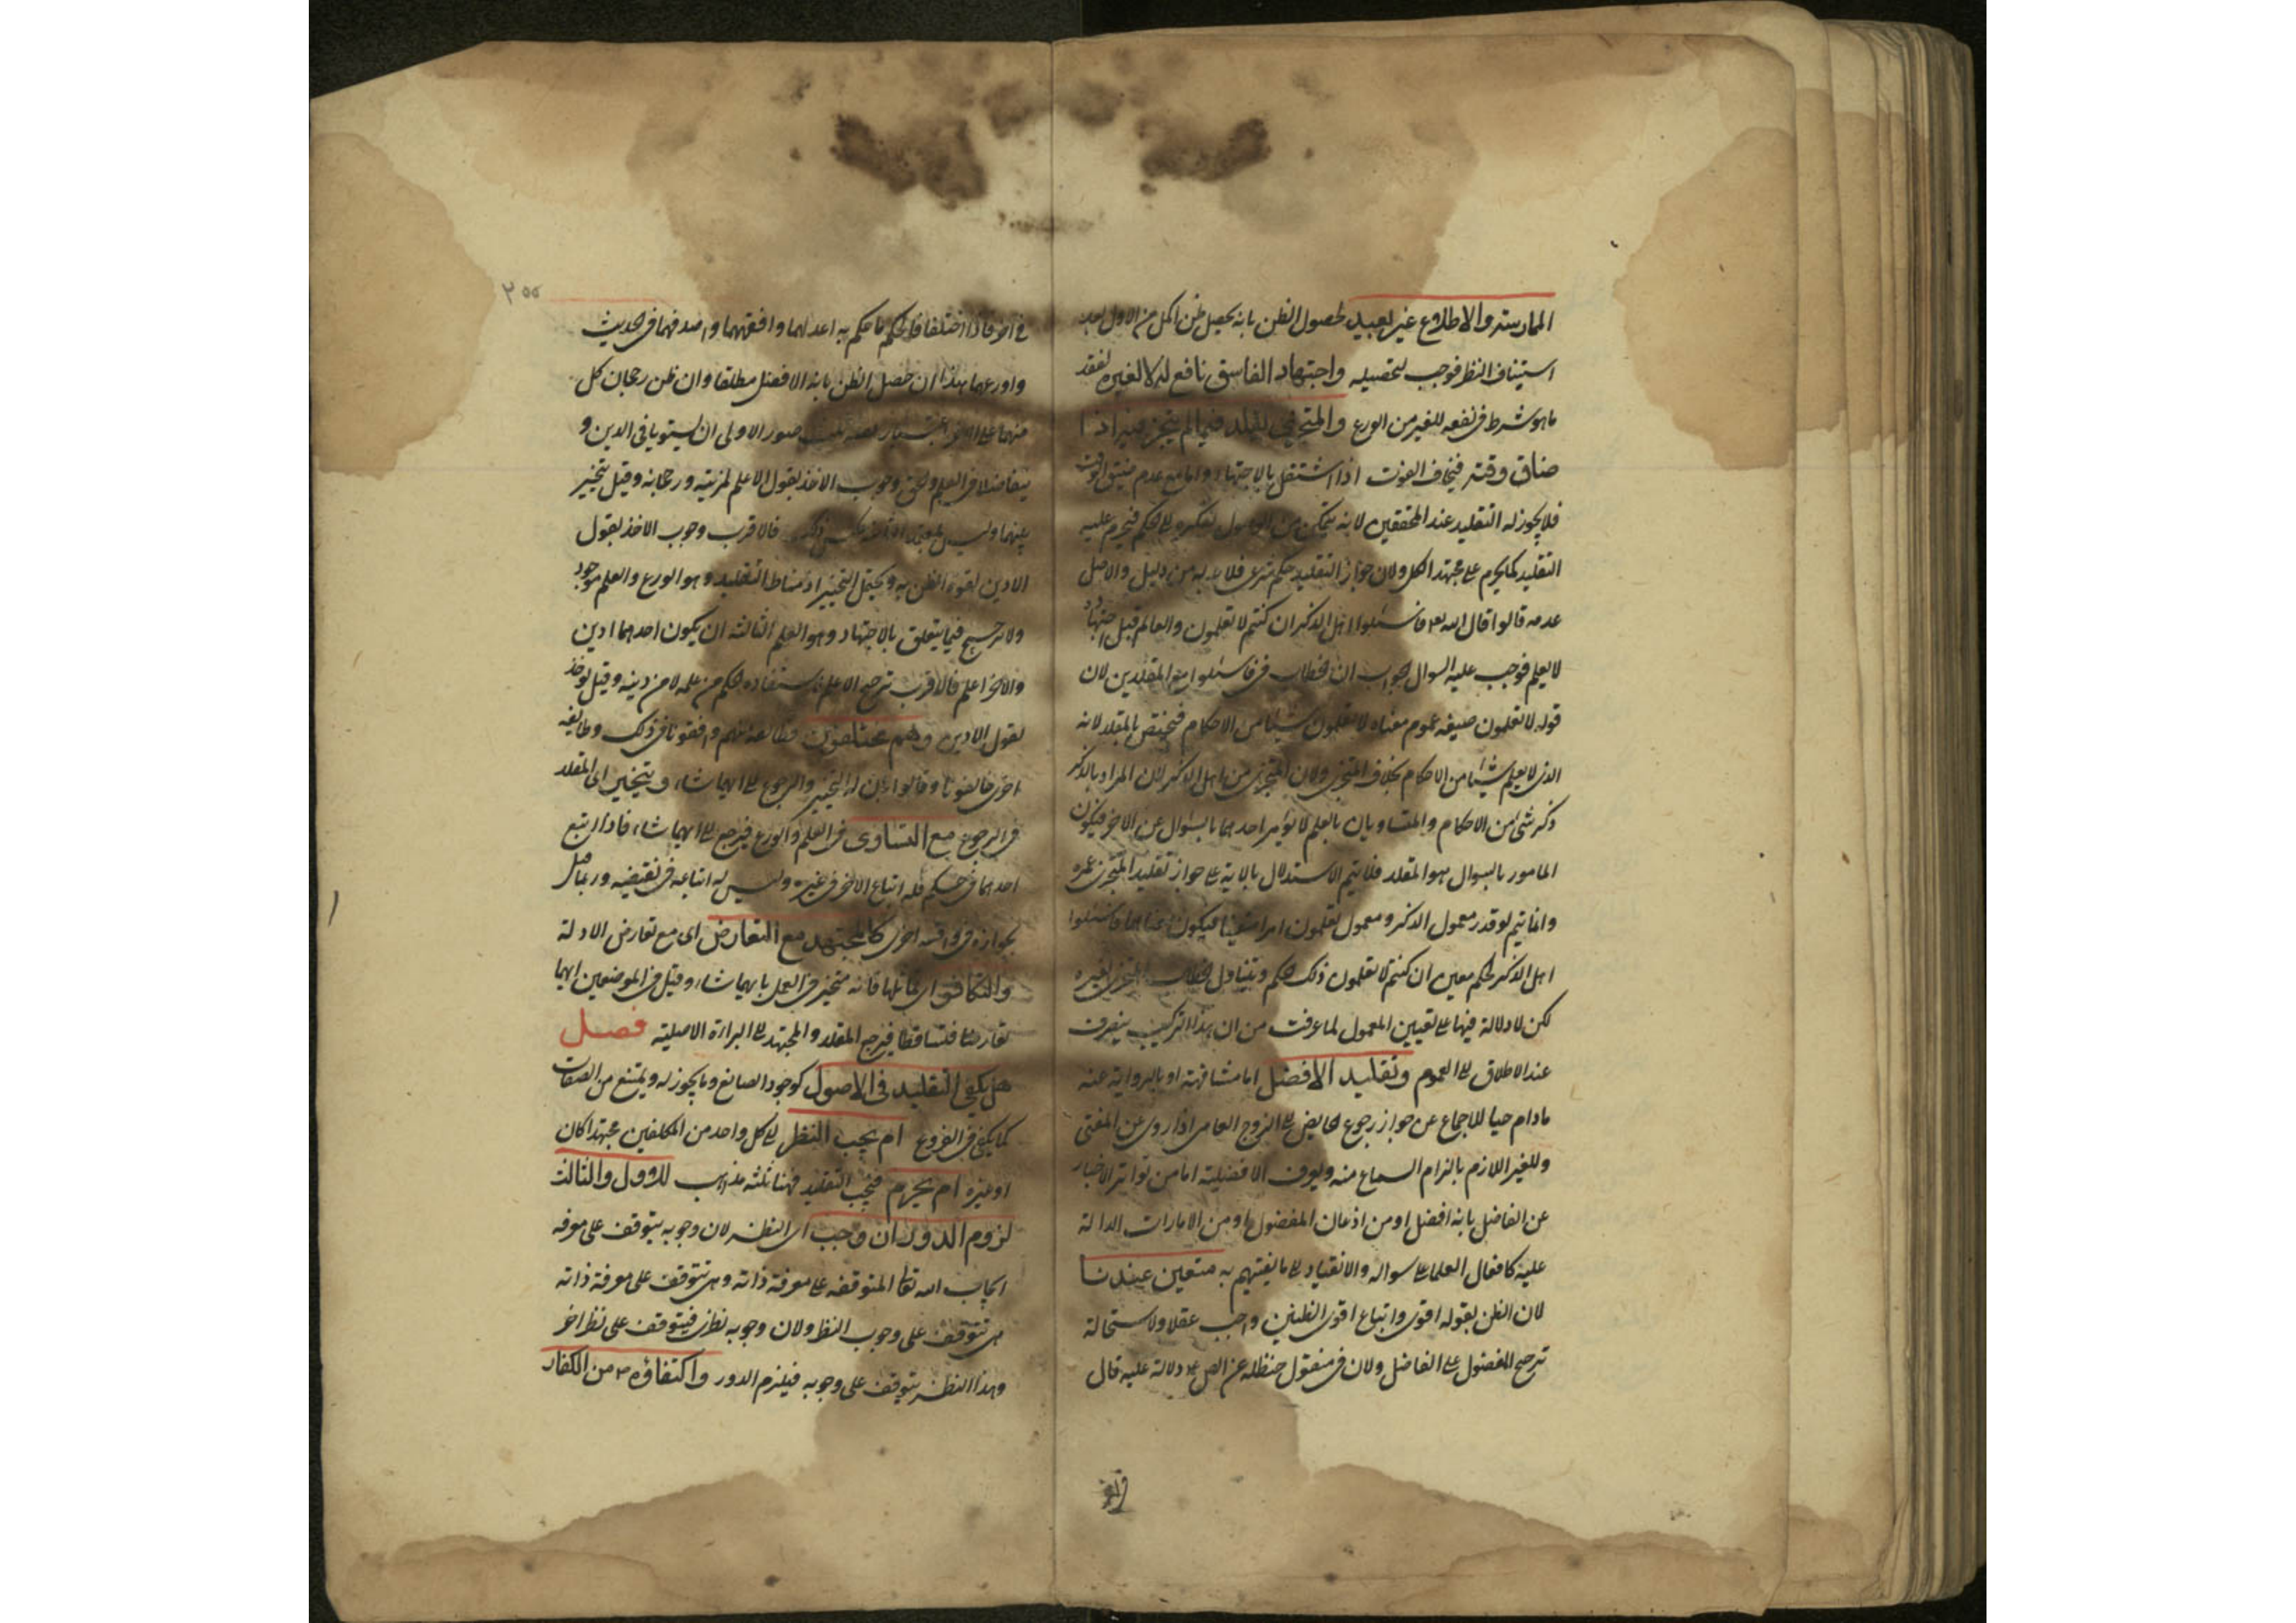 الممارسة والاطلاع غير بعيد لحصول الظن بانه يحصل ظن اكمل من الاول بعد
استيناف النظر فوجب لتحصيله واجتهاد الفاسق نافع له لا لغيره لفقد
ما هو شرط فى نفعه للغير من الورع والمتجزى يقلد فيما لم يتجز فيه اذا
ضاق وقته فيخاف الفوت اذا اشتغل بالاجتهاد واما مع عدم ضيق الوقت
فلا يجوز له التقليد عند المحققين لانه يتمكن من الوصول بفكره الى الحكم فيحرم عليه
التقليد كما يحرم على مجتهد الكل ولان جواز التقليد حكم شرعى فلا بد له من دليل والاصل
عدمه قالوا قال الله تعه فاسئلوا اهل الذكر ان كنتم لا تعلمون والعالم قبل اجتهاد
لا يعلم فوجب عليه السوال الجواب ان الخطاب فى فاسئلوا مع المقلدين لان
قوله لا تعلمون صيغه عموم معناه لا تعلمون شيئا من الاحكام فيختص بالمقلد لانه
الذى لا يعلم شيئا من الاحكام بخلاف المتجزى ولان المتجزى من اهل الذكر لان المراد بالذكر
ذكر شئ من الاحكام والمتساويان بالعلم لا يؤمر احدهما بالسؤال عن الاخر فيكون
المامور بالسوال هو المقلد فلا يتم الاستدلال بالاية على جواز تقليد المتجزى غيره
وانما يتم لو قدر معمول الذكر ومعمول تعلمون امرا معينا ليكون معناها فاسئلوا
اهل الذكر لحكم معين ان كنتم لا تعلمون ذلك الحكم ويتناول الخطاب المتجزى لغيره
لكن لا دلالة فيها على تعيين المعمول لما عرفت من ان هذا التركيب ينصرف
عند الاطلاق الى العموم وتقليد الافضل اما مشافهة او بالرواية عنه
مادام حيا للاجماع عن جواز رجوع الحايض الى الزوج العامى اذا روى عن المفتى
وللغير اللازم بالزام السماع منه ويعرف الافضلية اما من تواتر الاخبار
عن الفاضل بانه افضل او من اذعان المفضول او من الامارات الدالة
عليه كافعال العلما على سواله والانقياد الى ما يفتيهم به متعين عندنا
لان الظن بقوله اقوى واتباع اقوى الظنين واجب عقلا ولاستحالة
ترجيح المفضول على الفاضل ولان فى منقول حنظله عن الص ع دلالة عليه قال
٢٥٥
فى اخر فاذا اختلفا فالحكم ما حكم به اعدلهما وافقههما واصدقهما فى الحديث
واورعهما هذا ان حصل الظن بانه الافضل مطلقا وان ظن رجحان كل
منهما على الاخر صور الاولى ان يستويا فى الدين و
يتفاضلا فى العلم والحق وجوب الاخذ بقول الاعلم لمزيته ورجحانه وقيل بتخير
بينهما وليس بمعتمد الثانية عكس ذلك فالاقرب وجوب الاخذ بقول
الادين لقوة الظن به ويحتمل التخيير اذ مناط التقليد وهو الورع والعلم موجود
ولا ترجيح فيما يتعلق بالاجتهاد وهو العلم الثالثه ان يكون احدهما ادين
والاخر اعلم فالاقرب ترجيح الاعلم لاستفاده الحكم من علمه لا من دينه وقيل يوخذ
بقول الادين وهم مختلفون فطائفة منهم وافقونا فى ذلك وطايفه
اخرى خالفونا وقالوا بان له التخير والرجوع الى ايهما شاء ويتخير اى المقلد
فى الرجوع مع التساوى فى العلم والورع فيرجع الى ايهما شاء فاذا اتبع
احدهما فى حكم فله اتباع الاخر فى غيره وليس له اتباعه فى نقيضه وربما قيل
بجوازه فى واقعه اخرى كالمجتهد مع التعارض اى مع تعارض الادلة
والتكافؤ اى تماثلها فانه متخير فى العمل بايهما شاء وقيل فى الموضعين انهما
تعارضا فتساقطا فيرجع المقلد والمجتهد الى البراءة الاصلية فصل
هل يكفى التقليد فى الاصول كوجود الصانع وما يجوز له ويمتنع من الصفات
كما يكفى فى الفروع ام يجب النظر على كل واحد من المكلفين مجتهدا كان
او غيره ام يحرم فيجب التقليد فهنا ثلثه مذاهب للاول والثالث
لزوم الدور ان وجب اى النظر لان وجوبه يتوقف على معرفه
ايجاب الله تعا المتوقفه على معرفة ذاته وهى تتوقف على معرفة ذاته
هى تتوقف على وجوب النظر ولان وجوبه نظرى فيتوقف على نظر اخر
وهذا النظر يتوقف على وجوبه فيلزم الدور واكتفاؤه ص من الكفار